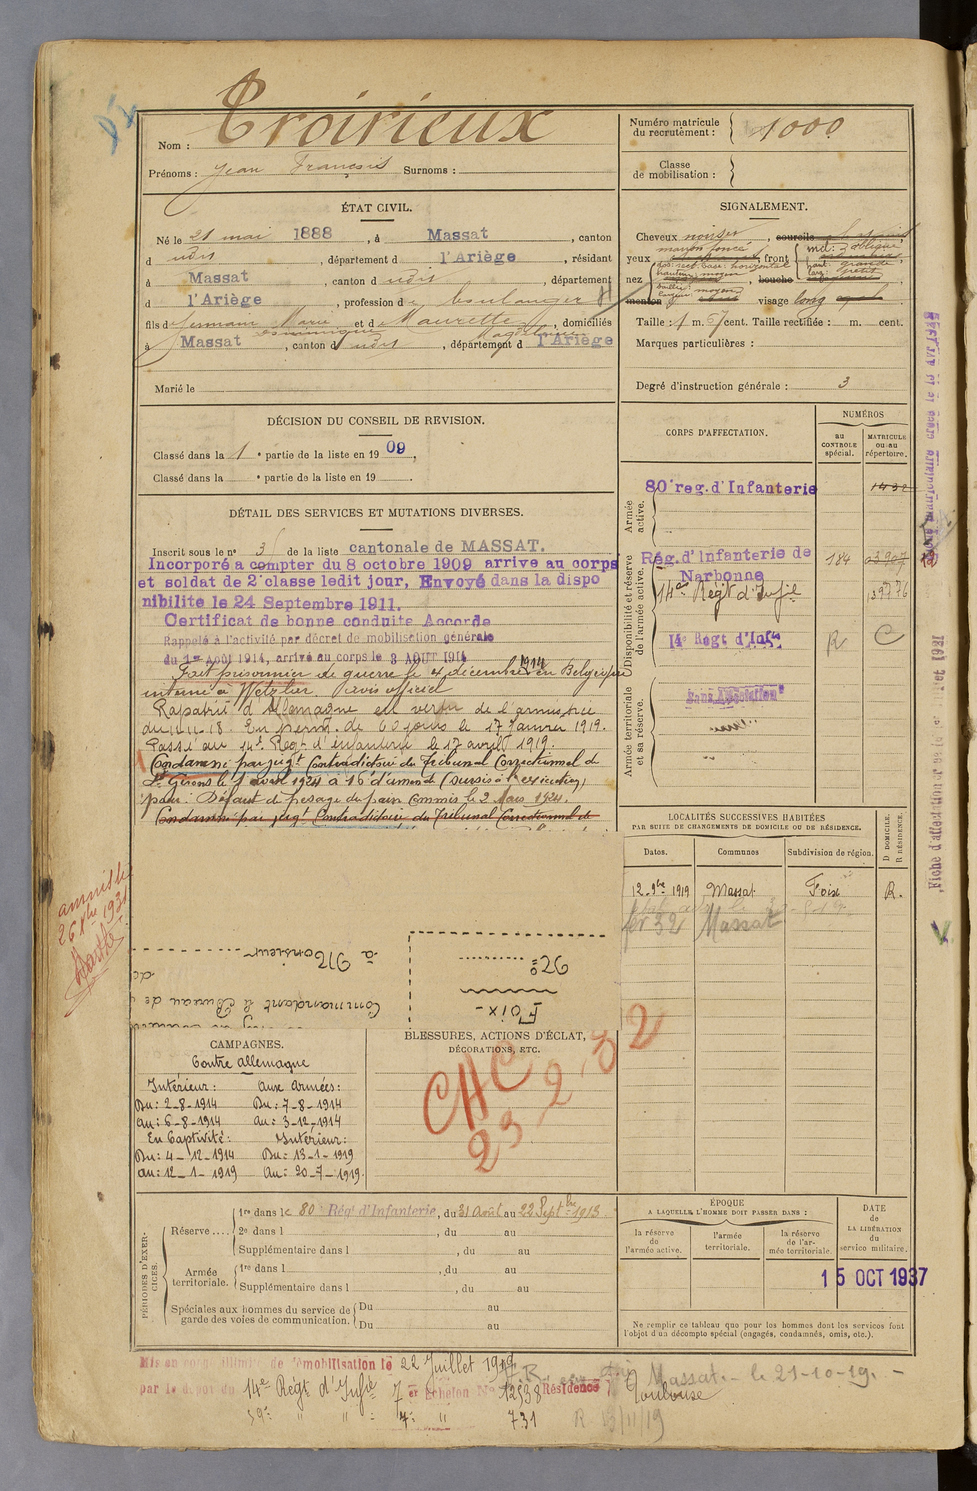 Nom : Troirieux
Prénoms : Jean François Surnoms :
Numéro matricule du recrutement : 1000
Classe de mobilisation :
ÉTAT CIVIL.
Né le 21 mai 1888, à Massat, canton
d udit, département d l'Ariège, résidant
à Massat, canton d udit, département
d l'Ariège, profession de boulanger
fils de Germain Marie et de Maurette, domiciliés
à Massat, canton d udit, département d l'Ariège
Marié le
SIGNALEMENT.
Cheveux noirs, sourcils
yeux marron foncé, front
nez, bouche
menton visage long
Taille : 1 m. 67 cent. Taille rectifiée : m. cent.
Marques particulières :
Degré d'instruction générale : 3
DÉCISION DU CONSEIL DE REVISION.
Classé dans la 1e partie de la liste en 1909.
Classé dans la e partie de la liste en 19
CORPS D'AFFECTATION.
NUMÉROS
au CONTROLE spécial.
MATRICULE ou au répertoire.
Armée active.
80e reg. d'Infanterie 1432
Disponibilité et réserve de l'armée active.
Rég. d'Infanterie de Narbonne 184
14e Régt d'Infie
14e Régt d'Infie R C
Armée territoriale et sa réserve.
Sans Affectation
DÉTAIL DES SERVICES ET MUTATIONS DIVERSES.
Inscrit sous le n° 3 de la liste cantonale de MASSAT.
Incorporé a compter du 8 octobre 1909 arrive au corps
et soldat de 2e classe ledit jour, Envoyé dans la dispo
nibilité le 24 Septembre 1911.
Certificat de bonne conduite Accordé
Rappelé à l'activité par décret de mobilisation générale
du 1er Août 1914, arrivé au corps le 3 AOUT 1914
Fait prisonnier de guerre le 4 décembre 1914 en Belgique
interné à Wetzlar avis officiel
Rapatrié d'Allemagne en vertu de l'armistice
du 11.11.18. En perm. de 60 jours le 17 Janvier 1919.
Passé au 14e Regt d'infanterie le 17 avril 1919.
Condamné par jugt Contradictoire du Tribunal Correctionnel de
St Girons le 1 avril 1924 à 16f d'amende (Sursis à l'exécution)
pour : Défaut de pesage du pain Commis le 2 Mars 1924.
Condamné par jugt Contradictoire du Tribunal Correctionnel de
amnistié
26 Xbre 1931
LOCALITÉS SUCCESSIVES HABITÉES
PAR SUITE DE CHANGEMENTS DE DOMICILE OU DE RÉSIDENCE.
D DOMICILE. R RÉSIDENCE.
Dates. Communes Subdivision de région.
12 9bre 1919 Massat Foix R.
fer 32 Massat
à Monsieur
Commandant le Bureau de
N°
Foix -
CAMPAGNES.
Contre Allemagne
Intérieur : Aux Armées :
Du : 2-8-1914 Du : 7-8-1914
Au : 6-8-1914 au : 3-12-1914
En Captivité : Intérieur :
Du : 4-12-1914 Du : 13-1-1919
au : 12-1-1919 Au : 20-7-1919.
BLESSURES, ACTIONS D'ÉCLAT,
DÉCORATIONS, ETC.
CHC
23-2-32
PÉRIODES D'EXERCICES.
Réserve .... 1re dans le 80e Rég. d'Infanterie, du 31 Août au 22 Septbre 1913.
2e dans l , du au
Supplémentaire dans l , du au
Armée territoriale. 1re dans l , du au
Supplémentaire dans l , du au
Spéciales aux hommes du service de garde des voies de communication. Du au
Du au
ÉPOQUE
A LAQUELLE L'HOMME DOIT PASSER DANS :
la réserve de l'armée active.
l'armée territoriale.
la réserve de l'armée territoriale.
DATE de LA LIBÉRATION du service militaire.
15 OCT 1937
Ne remplir ce tableau que pour les hommes dont les services font
l'objet d'un décompte spécial (engagés, condamnés, omis, etc.).
Mis en congé illimité de démobilisation le 22 Juillet 1919
par le dépôt du 14e Régt d'Infie 7er échelon No 12538 Résidence Toulouse
Massat. - le 21-10-19. -
59e " " : 4e " 731 R 13/11/19